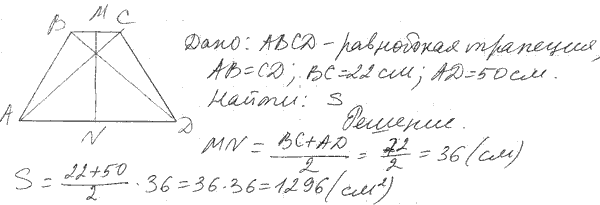 B M C
A N D
Дано: ABCD – равнобокая трапеция,
AB=CD; BC=22 см; AD=50 см.
Найти: S
Решение.
MN = (BC+AD)/2 = 72/2 = 36 (см)
S = (22+50)/2 · 36 = 36·36 = 1296 (см²)